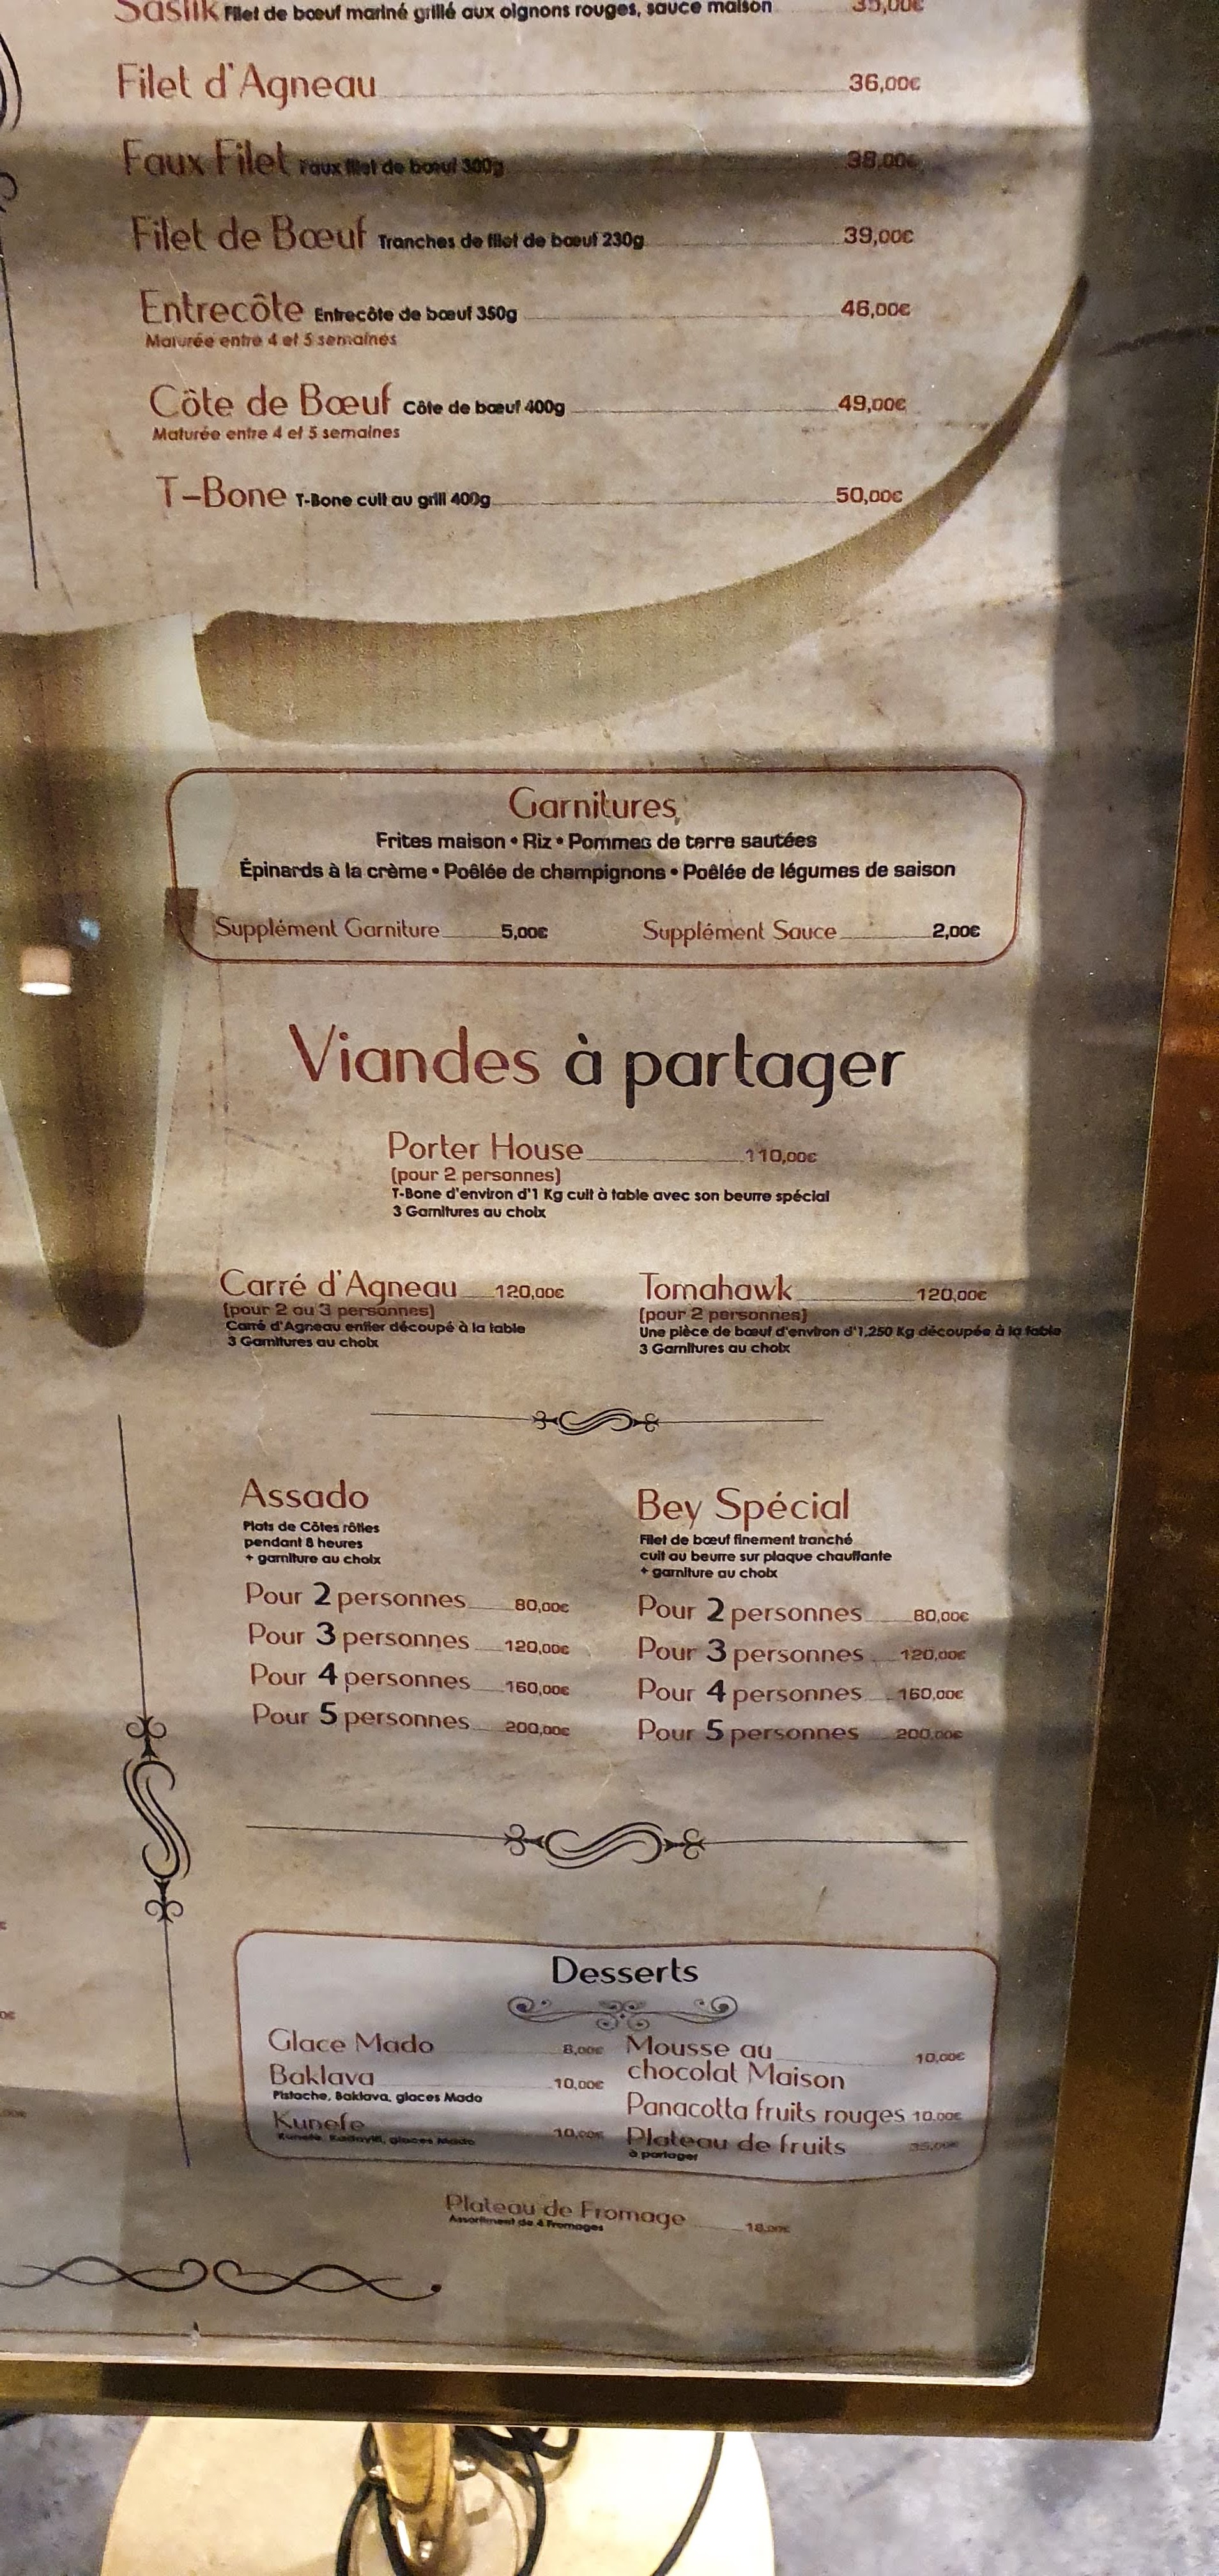 Saslik Filet de bœuf mariné grillé aux oignons rouges, sauce maison 35,00€
Filet d'Agneau 36,00€
Faux Filet Faux filet de bœuf 300g 38,00€
Filet de Bœuf Tranches de filet de bœuf 230g 39,00€
Entrecôte Entrecôte de bœuf 350g 46,00€
Maturée entre 4 et 5 semaines
Côte de Bœuf Côte de bœuf 400g 49,00€
Maturée entre 4 et 5 semaines
T-Bone T-Bone cuit au grill 400g 50,00€
Garnitures
Frites maison • Riz • Pommes de terre sautées
Épinards à la crème • Poêlée de champignons • Poêlée de légumes de saison
Supplément Garniture 5,00€ Supplément Sauce 2,00€
Viandes à partager
Porter House 110,00€
(pour 2 personnes)
T-Bone d'environ d'1 Kg cuit à table avec son beurre spécial
3 Garnitures au choix
Carré d'Agneau 120,00€
(pour 2 ou 3 personnes)
Carré d'Agneau entier découpé à la table
3 Garnitures au choix
Tomahawk 120,00€
(pour 2 personnes)
Une pièce de bœuf d'environ d'1,250 Kg découpée à la table
3 Garnitures au choix
Assado
Plats de Côtes rôties
pendant 8 heures
+ garniture au choix
Pour 2 personnes 80,00€
Pour 3 personnes 120,00€
Pour 4 personnes 160,00€
Pour 5 personnes 200,00€
Bey Spécial
Filet de bœuf finement tranché
cuit au beurre sur plaque chauffante
+ garniture au choix
Pour 2 personnes 80,00€
Pour 3 personnes 120,00€
Pour 4 personnes 160,00€
Pour 5 personnes 200,00€
Desserts
Glace Mado 8,00€
Baklava 10,00€
Pistache, Baklava, glaces Mado
Kunefe 10,00€
Kunefe, Kadayifi, glaces Mado
Mousse au
chocolat Maison 10,00€
Panacotta fruits rouges 10,00€
Plateau de fruits 35,00€
à partager
Plateau de Fromage 18,00€
Assortiment de 4 Fromages